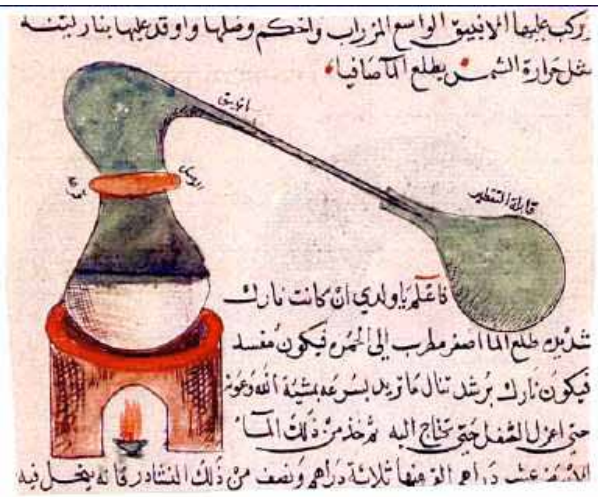 يركب عليها الانبيق الواسع المزراب واحكم وصلها واوقد عليها بنار لينه
مثل حرارة الشمس يطلع الما صافيا
انبيق
قابلة التقطير
فاعلم يا ولدي ان كانت نارك
شديده طلع الما اصفر مطرب إلى الحمره فيكون مفسد
فيكون نارك برشد تنال ما تريد بسرعه بمشية الله وعونه
حتى اعزل الثفل حتى تحتاج اليه ثم خذ من ذلك الماء
عشر دراهم الق فيها ثلاثة دراهم ونصف من ذلك النشادر فانه ينحل فيه